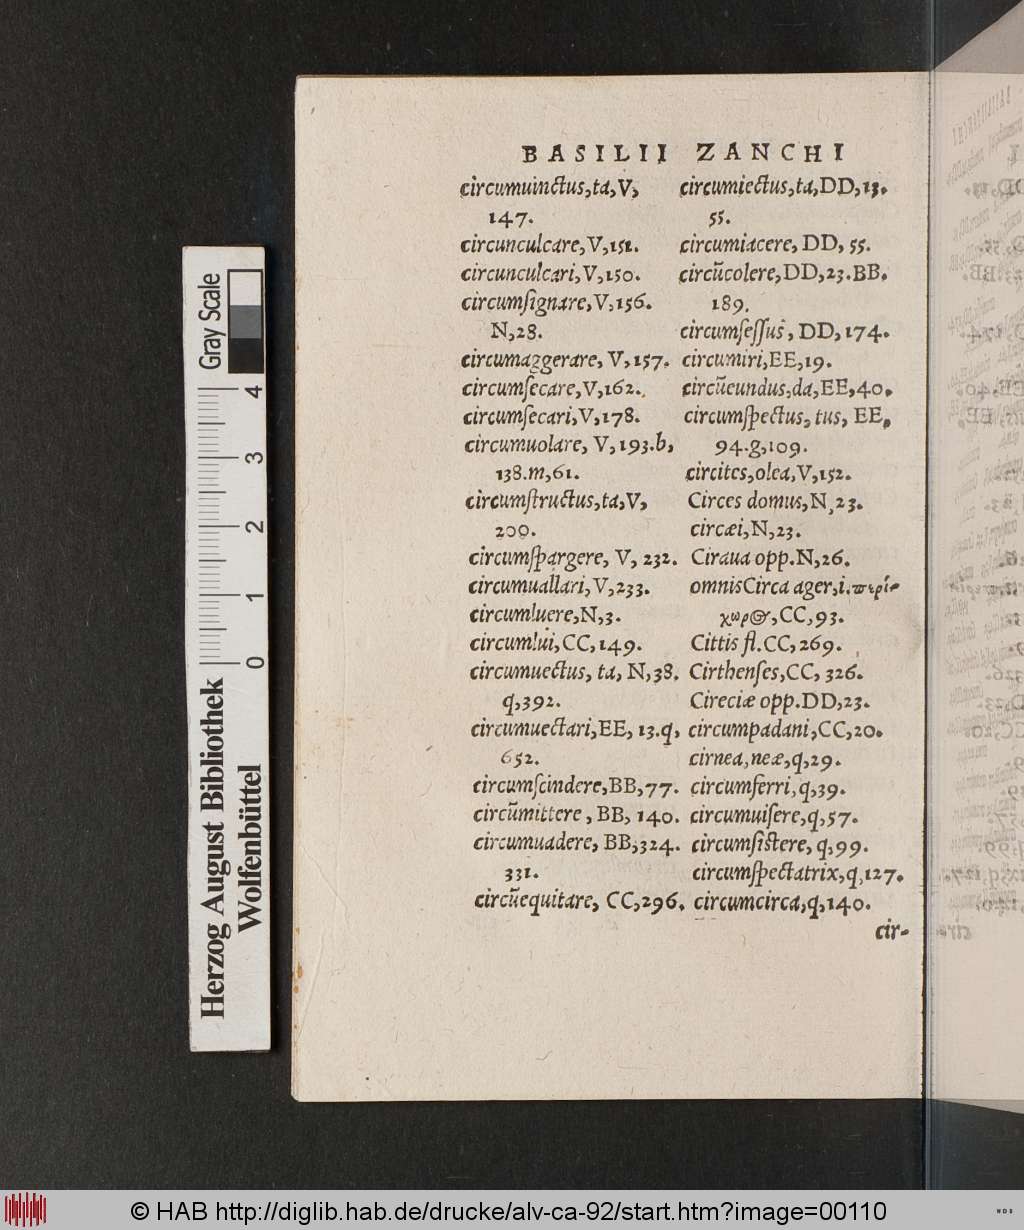 BASILII ZANCHI
circumuinctus,ta,V,
147.
circunculcare,V,151.
circunculcari,V,150.
circumſignare,V,156.
N,28.
circumaggerare, V,157.
circumſecare,V,162.
circumſecari,V,178.
circumuolare, V,193.b,
138.m,61.
circumſtructus,ta,V,
200.
circumſpargere, V, 232.
circumuallari,V,233.
circumluere,N,3.
circumlui,CC,149.
circumuectus, ta, N,38.
q,392.
circumuectari,EE, 13.q,
652.
circumſcindere,BB,77.
circũmittere, BB, 140.
circumuadere, BB,324.
331.
circũequitare, CC,296.
circumiectus,ta,DD,13.
55.
circumiacere, DD, 55.
circũcolere,DD,23.BB.
189.
circumſeſſus, DD,174.
circumiri,EE,19.
circũeundus,da,EE,40.
circumſpectus, tus, EE,
94.g,109.
circites,olea,V,152.
Circes domus,N,23.
circæi,N,23.
Ciraua opp.N,26.
omnisCirca ager,i.περί-
χωρος,CC,93.
Cittis fl.CC,269.
Cirthenſes,CC, 326.
Cireciæ opp.DD,23.
circumpadani,CC,20.
cirnea,neæ,q,29.
circumferri,q,39.
circumuiſere,q,57.
circumſiſtere, q,99.
circumſpectatrix,q,127.
circumcirca,q,140.
cir-
Gray Scale
4
3
2
1
0
Herzog August Bibliothek
Wolfenbüttel
© HAB http://diglib.hab.de/drucke/alv-ca-92/start.htm?image=00110